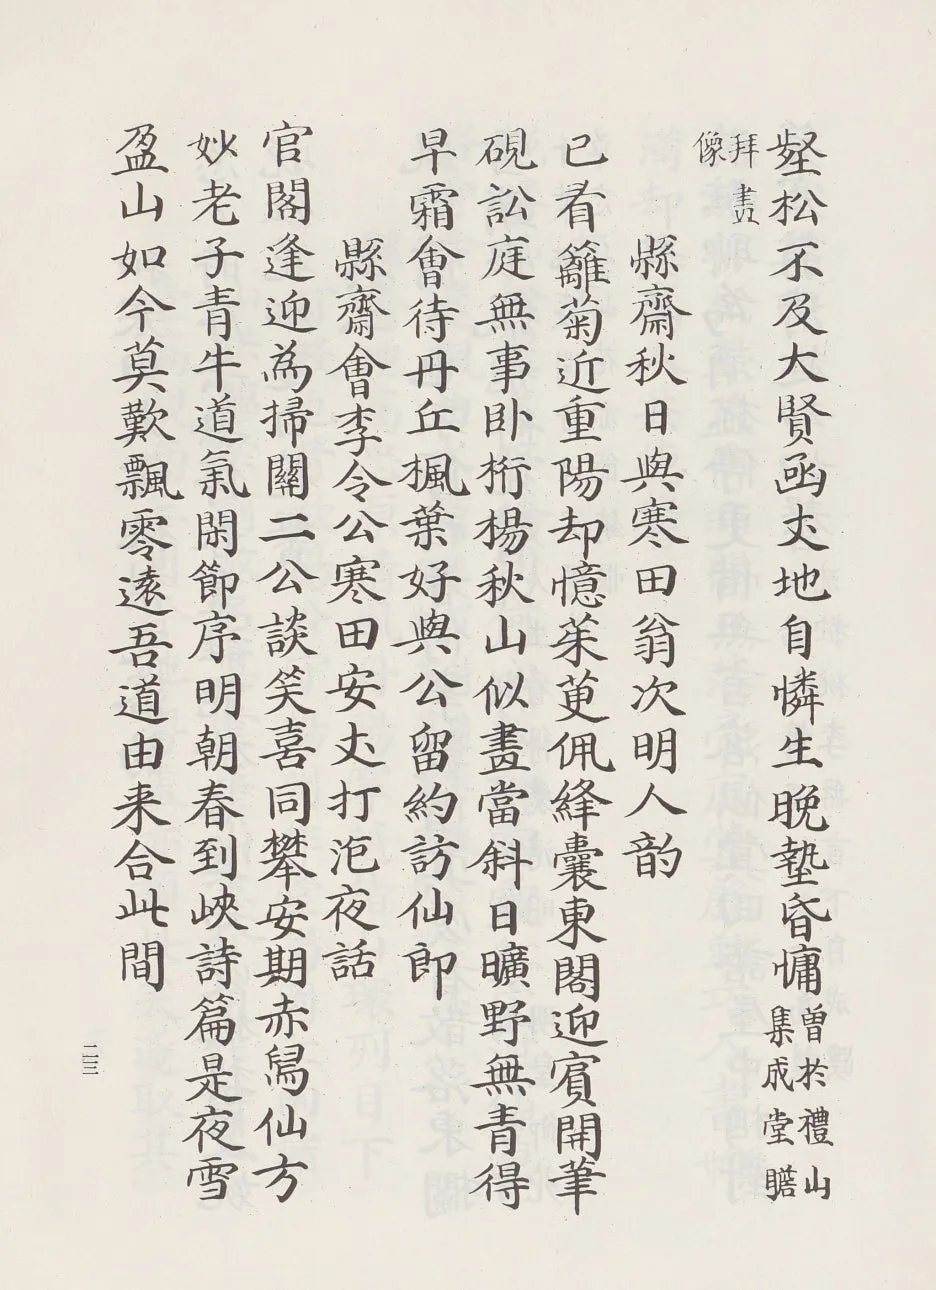 壑松不及大賢函丈地自憐生晚墊昏慵曽於禮山集成堂瞻
拜畫像
縣齋秋日與寒田翁次明人韵
已看籬菊近重陽却憶茱萸佩絳囊東閣迎賓開筆
硯訟庭無事卧桁楊秋山似畫當斜日曠野無青得
早霜會待丹丘楓葉好與公留約訪仙郎
縣齋會李令公寒田安丈打范夜話
官閣逢迎為掃關二公談笑喜同攀安期赤舄仙方
妙老子青牛道氣閑節序明朝春到峽詩篇是夜雪
盈山如今莫歎飄零遠吾道由来合此間
二三